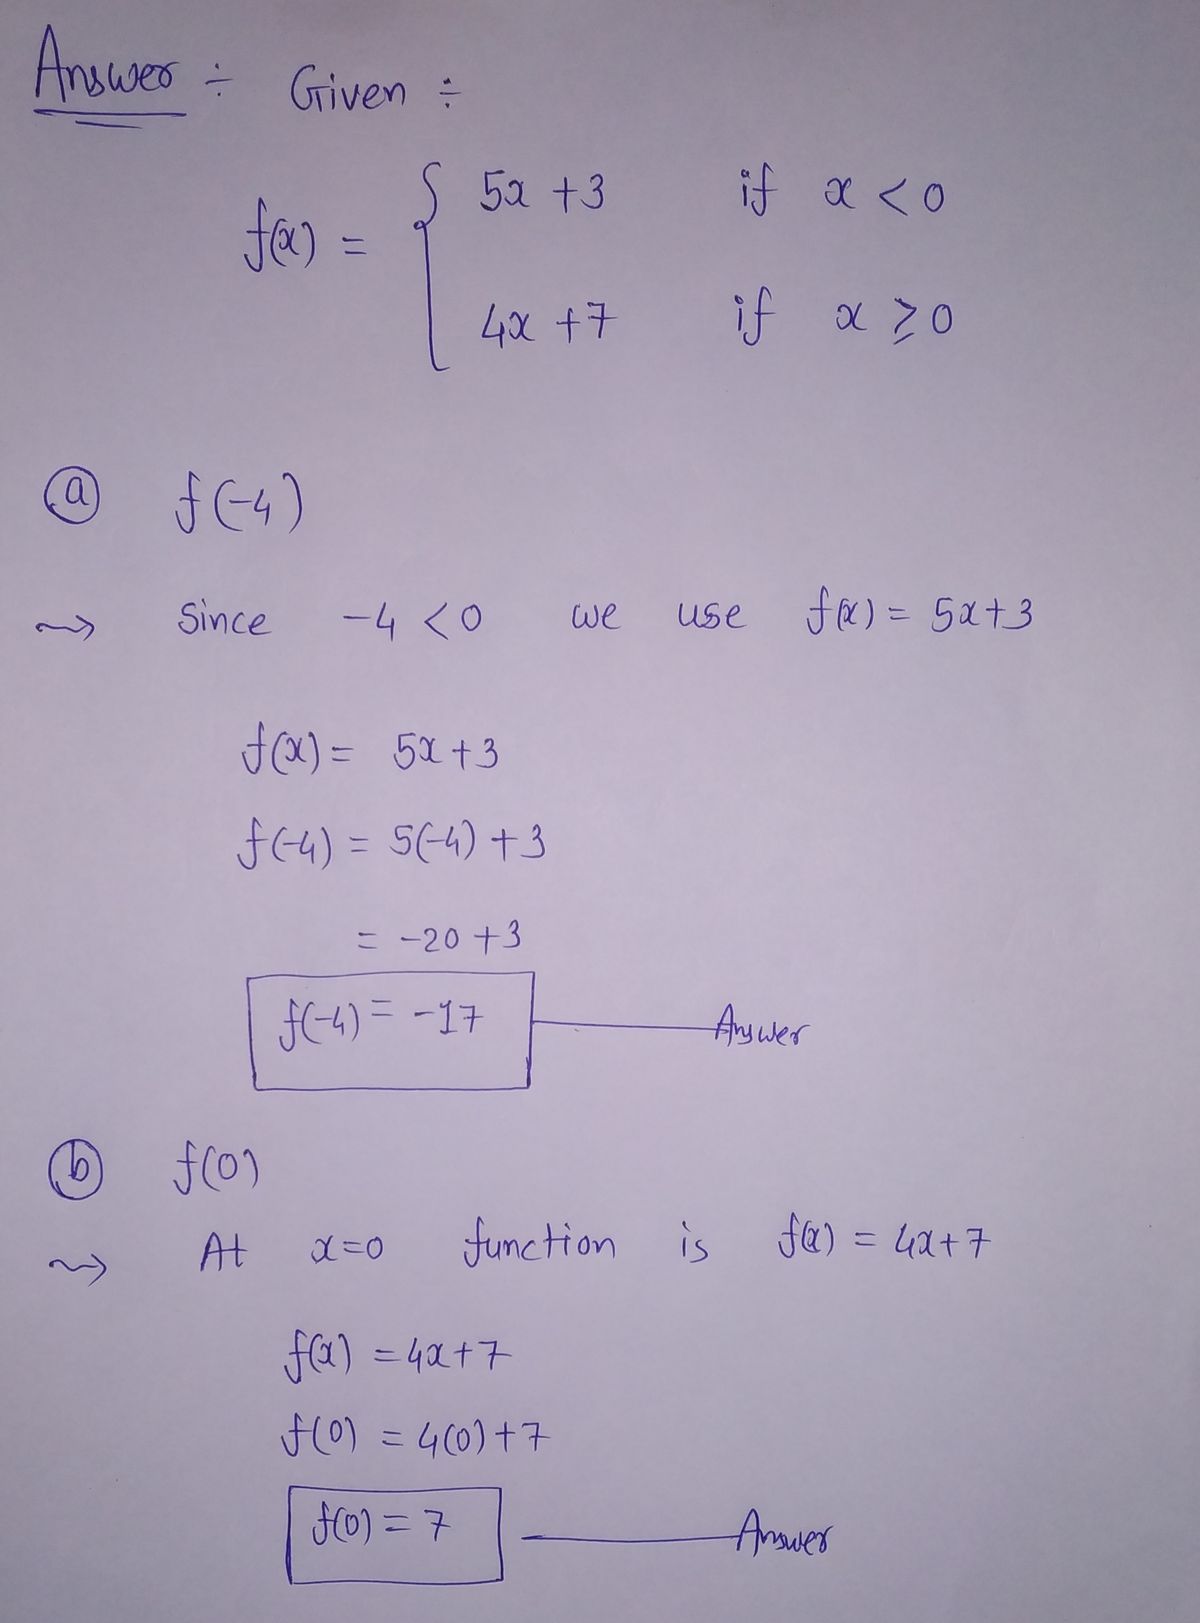 Answer ÷ Given ÷
f(x) = { 5x + 3 if x < 0
4x + 7 if x ≥ 0
(a) f(-4)
⇝ Since -4 < 0 we use f(x) = 5x + 3
f(x) = 5x + 3
f(-4) = 5(-4) + 3
= -20 + 3
f(-4) = -17 Answer
(b) f(0)
⇝ At x=0 function is f(x) = 4x+7
f(x) = 4x+7
f(0) = 4(0)+7
f(0) = 7 Answer